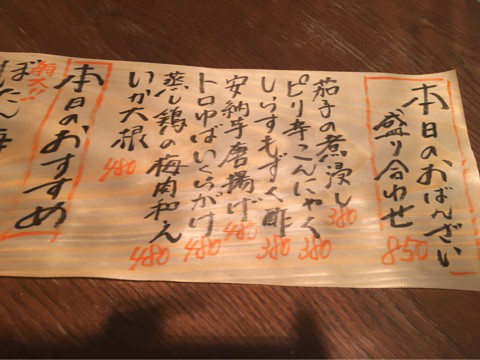 本日のおばんざい
盛り合わせ
850
茄子の煮浸し 380
ピリ辛こんにゃく 380
しらすもずく酢 380
安納芋唐揚げ 480
トロゆばいくらがけ 480
蒸し鶏の梅肉和え 480
いか大根 480
本日のおすすめ